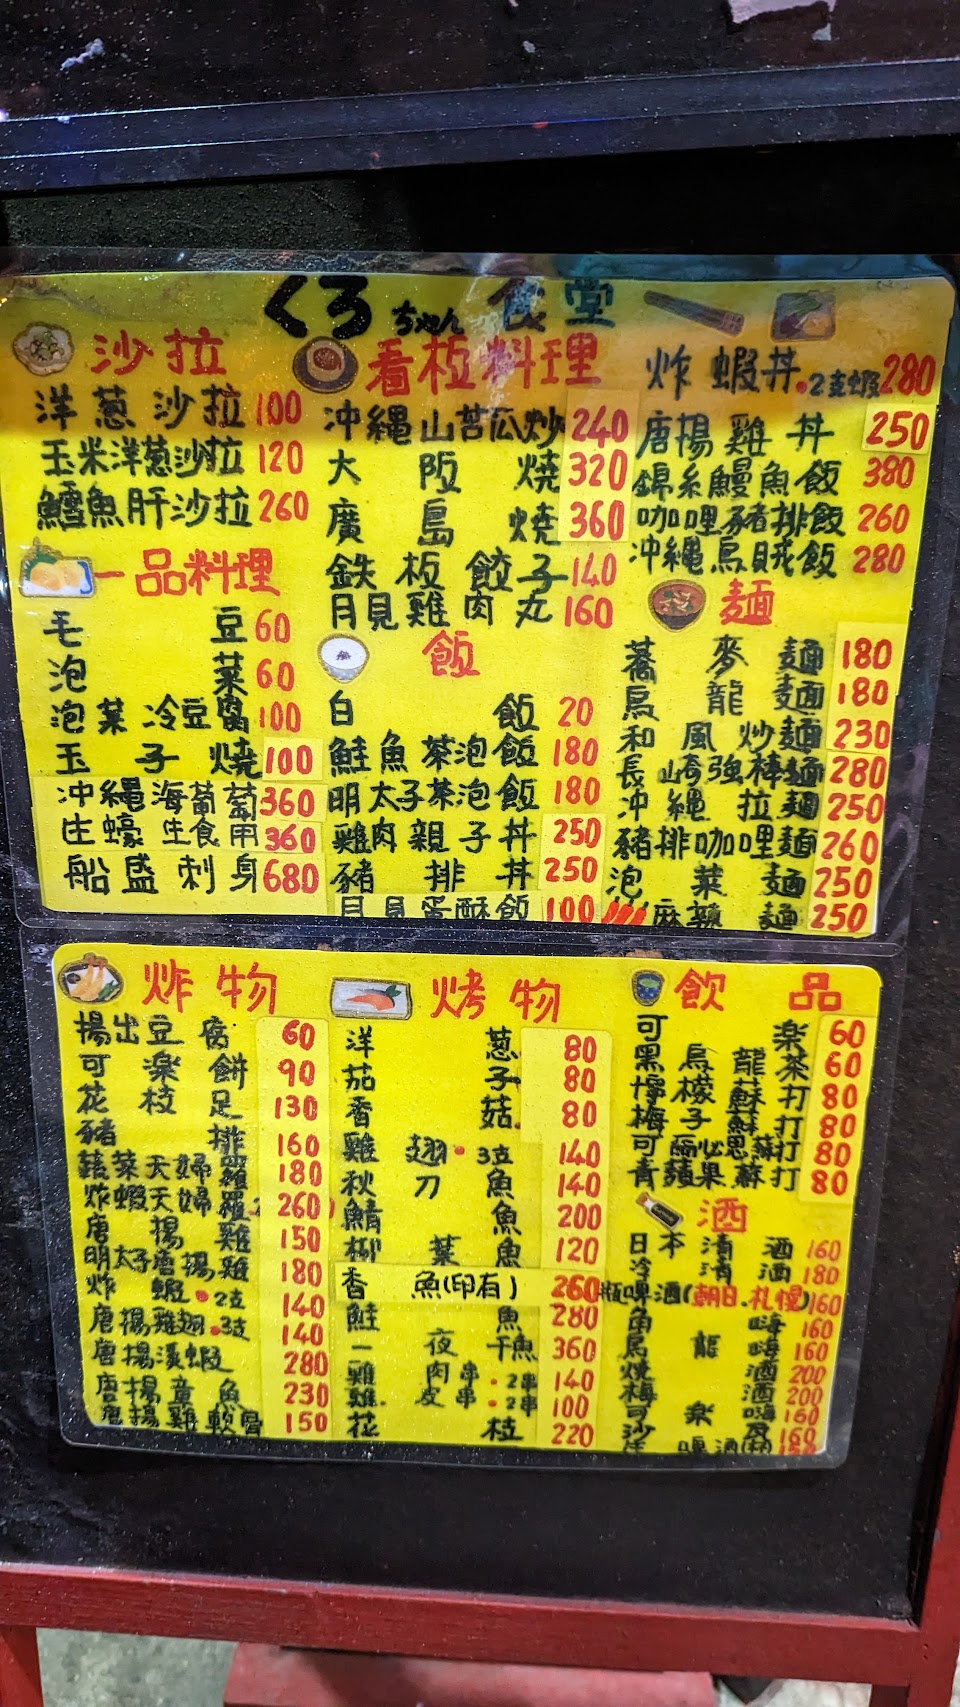 くろちゃん 食堂
沙拉
洋蔥沙拉 100
玉米洋蔥沙拉 120
鱈魚肝沙拉 260
一品料理
毛豆 60
泡菜 60
泡菜冷豆腐 100
玉子燒 100
沖繩海葡萄 360
生蠔 生食用 360
船盛刺身 680
看板料理
沖縄山苦瓜炒 240
大阪燒 320
廣島燒 360
鉄板餃子 140
月見雞肉丸 160
飯
白飯 20
鮭魚茶泡飯 180
明太子茶泡飯 180
雞肉親子丼 250
豬排丼 250
月見蛋酥飯 100
炸蝦丼.2支蝦 280
唐揚雞丼 250
錦糸鰻魚飯 380
咖哩豬排飯 260
沖縄烏賊飯 280
麵
蕎麥麵 180
烏龍麵 180
和風炒麵 230
長崎強棒麵 280
沖縄拉麵 250
豬排咖哩麵 260
泡菜麵 250
麻辣麵 250
炸物
揚出豆腐 60
可楽餅 90
花枝足 130
豬排 160
蔬菜天婦羅 180
炸蝦天婦羅 260
唐揚雞 150
明太子唐揚雞 180
炸蝦.2支 140
唐揚雞翅.3支 140
唐揚溪蝦 280
唐揚章魚 230
唐揚雞軟骨 150
烤物
洋蔥 80
茄子 80
香菇 80
雞翅.3支 140
秋刀魚 140
鯖魚 200
柳葉魚 120
香魚(卵有) 260
鮭魚 280
一夜干魚 360
雞肉串.2串 140
雞皮串.2串 100
花枝 220
飲品
可楽 60
黑烏龍茶 60
檸檬蘇打 80
梅子蘇打 80
可爾必思蘇打 80
青蘋果蘇打 80
酒
日本清酒 160
冷清酒 180
瓶啤酒(朝日.札幌) 160
角嗨 160
烏龍嗨 160
燒酒 200
梅酒 200
可楽嗨 160
沙 160